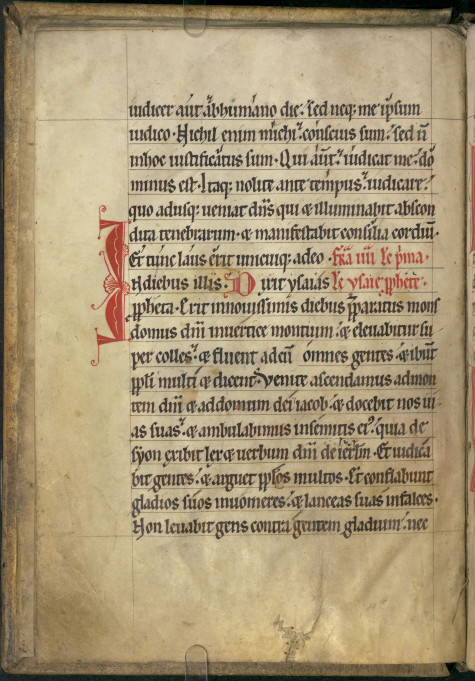 iudicer aut̄ abhumano die. sed neq; me ipsum
iudico. Nichil enim michi conscius sum. sed n̄
inhoc iustificatus sum. Qui aut̄ iudicat me. do
minus est. Itaq; nolite ante tempus iudicare.
quo adusq; ueniat dn̄s qui & illuminabit abscon
dita tenebrarum. & manifestabit consilia cordiū.
Et tunc laus erit unicuiq; adeo. fr̄a iiii le p̄ma.
N diebus illis. Dixit ysaias le ysaie ꝓphete.
ꝓpheta. Erit innouissimis diebus p̄paratus mons
domus dn̄i inuertice montium. & eleuabitur su
per colles. & fluent ad eū omnes gentes. & ibūt
ppl̄i multi & dicent. Venite ascendamus admon
tem dn̄i & addomum dei iacob. & docebit nos ui
as suas. & ambulabimus insemitis eiꝰ. quia de
syon exibit lex & uerbum dn̄i de ierl̄m. Et iudica
bit gentes. & arguet ppl̄os multos. Et conflabunt
gladios suos inuomeres. & lanceas suas infalces.
Non leuabit gens contra gentem gladium. nec